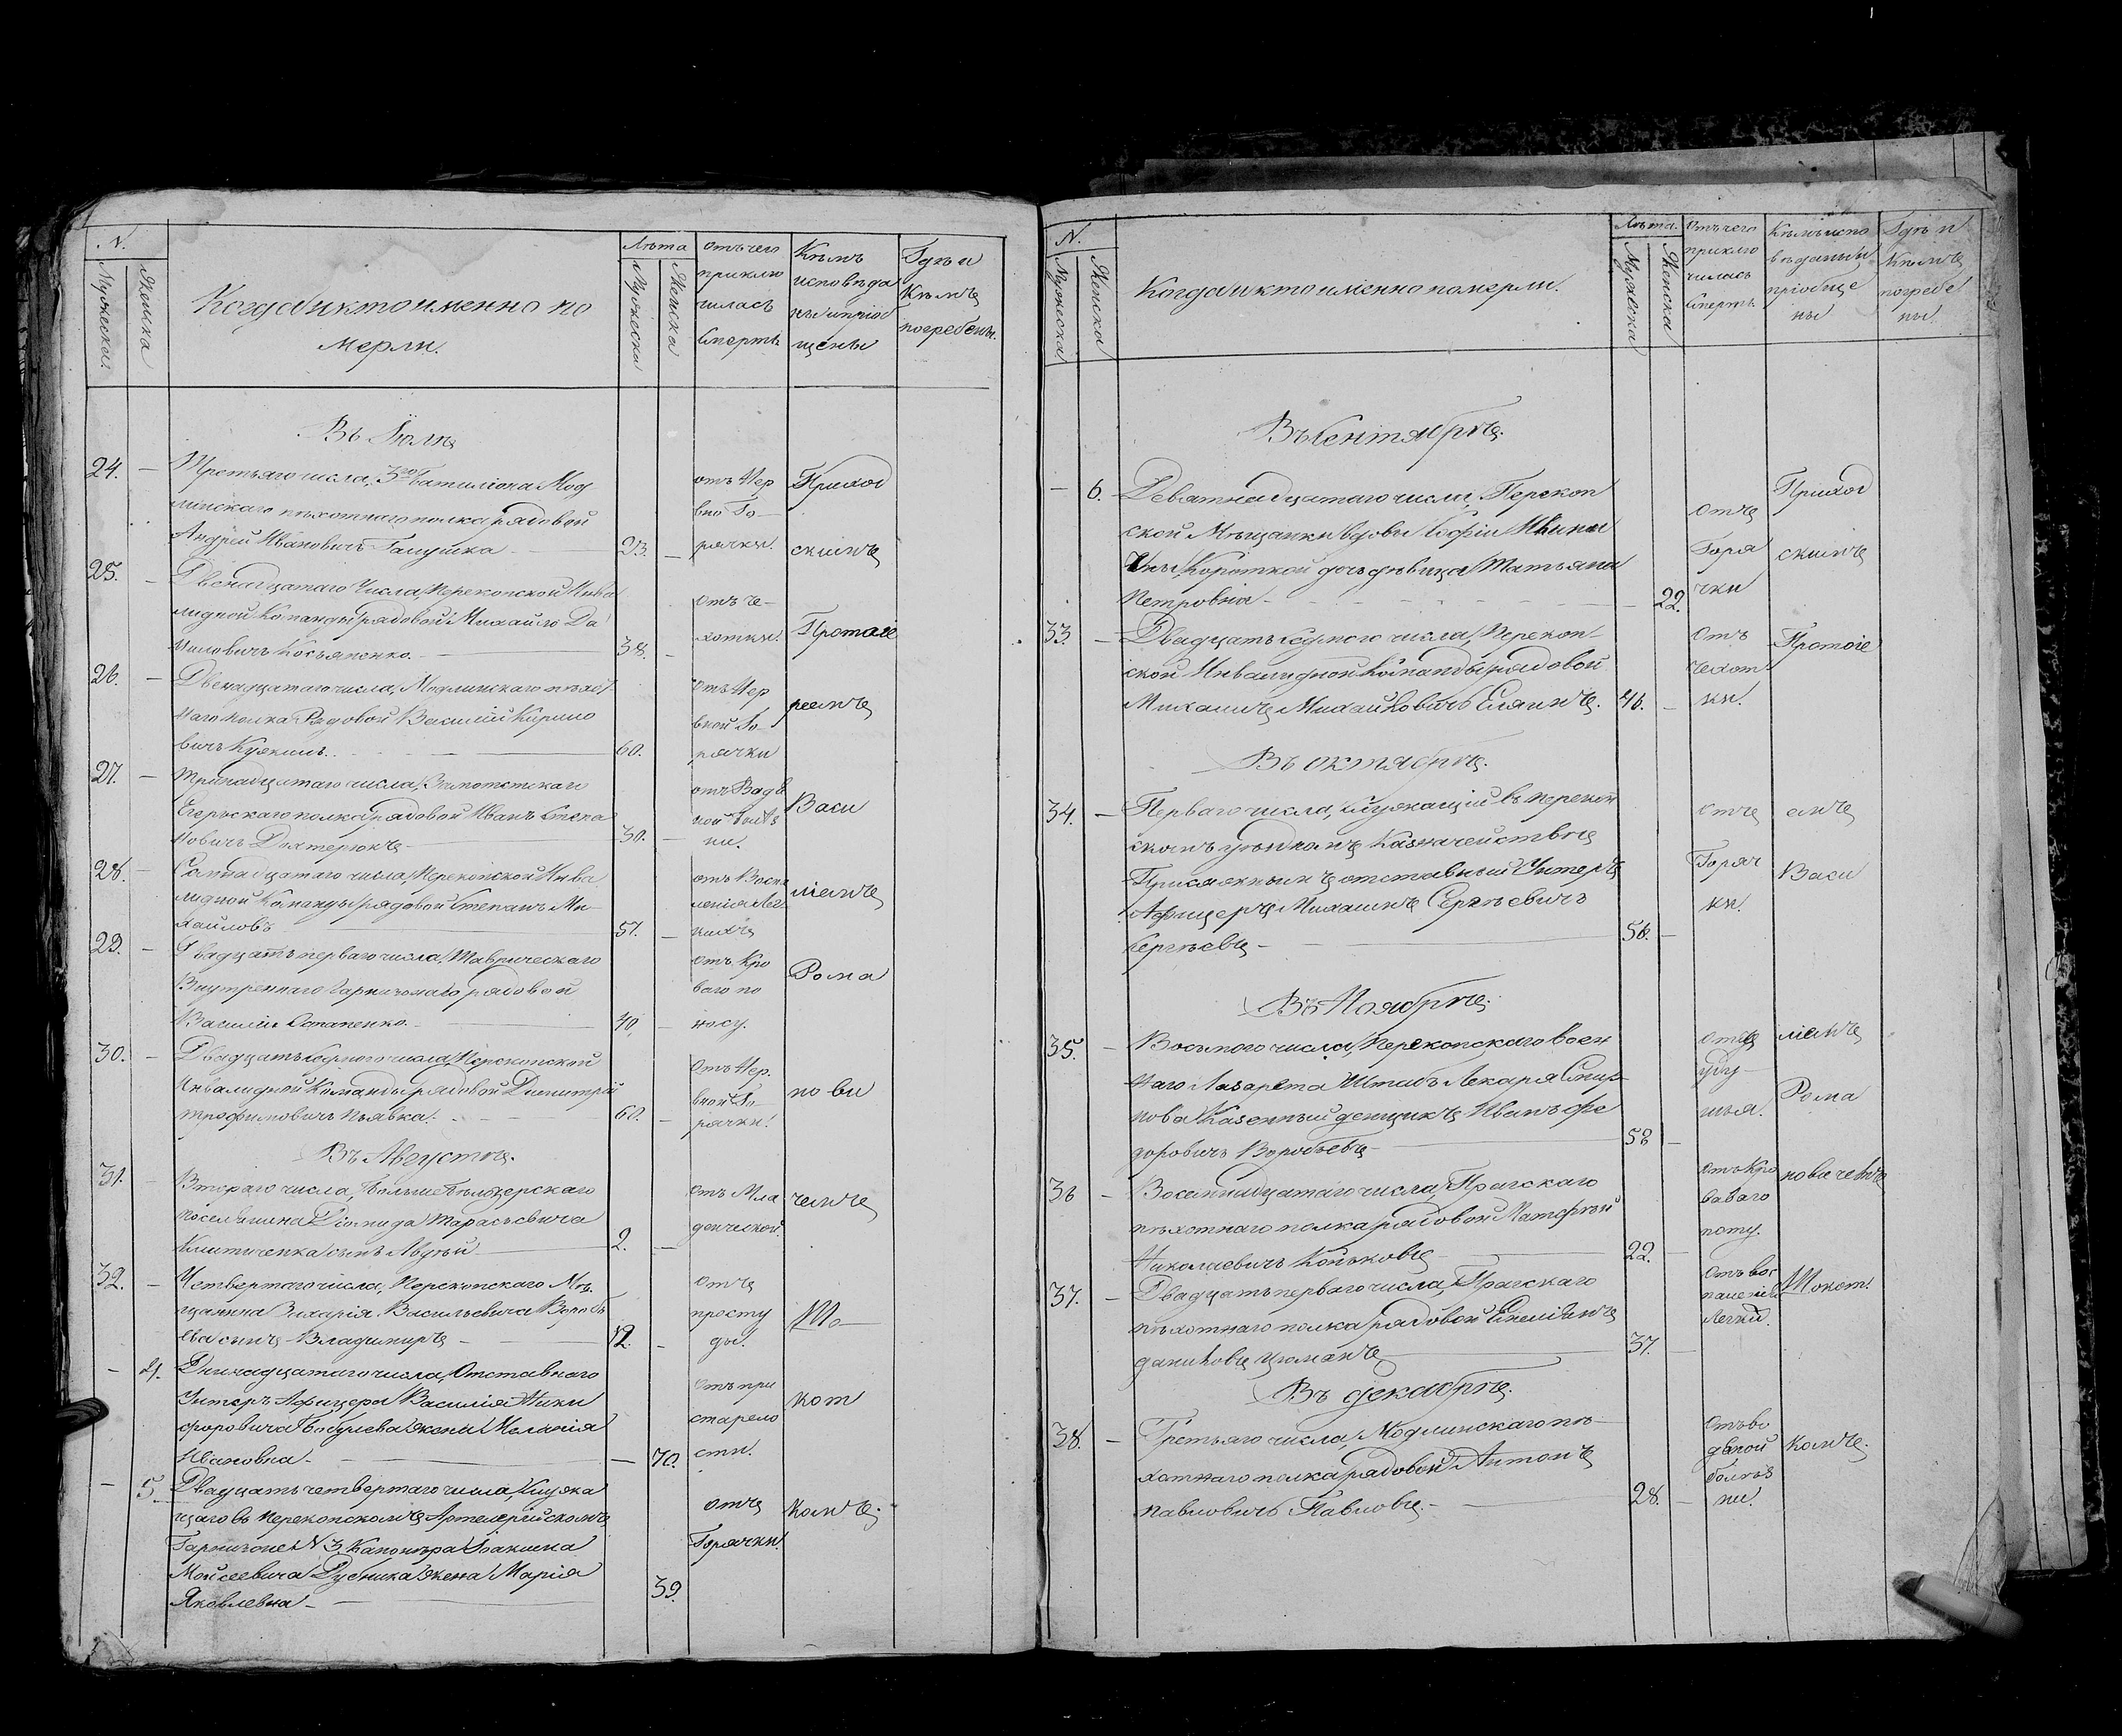 N.
Мужеска.
Женска
Когда и кто именно по
мерли.
Лѣта
Мужески
Женска
Отъ чего
приклю
чилась
смерть
Кѣмъ
исповѣда
ны и пріоб
щены
Гдѣ и
Кѣмъ
погребены.
Въ Іюлѣ
24. — Третьяго числа, 3го Баталіона Мод
линскаго пѣхотнаго полка рядовой
Андрей Ивановичъ Галушка — 23. —
отъ Нер
вно Го
рячки.
25. — Двенадцатаго Числа, Перекопской Инва
лидной Команды рядовой Михайло Да
ниловичъ Косьяненко. — 38. —
отъ че-
хотки.
26. — Двенадцатаго числа, Модлинскаго пѣхот
наго полка Рядовой Василій Кирило
вичъ — 60.
отъ Нер
вной Го
рячки
27. — Тринадцатаго числа,
Егерскаго полка рядовой Иванъ Степа
новичъ Дехтерюкъ — 30. —
отъ Водя
ной болѣз
ни.
28. — Семнадцатаго числа, Перекопской Инва
лидной Команды рядовой Степанъ Ми
хайловъ — 51. —
отъ Воспа
ленія Лег
кихъ
29. — Двадцать перваго числа, Таврическаго
Внутренняго Гарнизонаго рядовой
Василій Остапенко. — 40. —
отъ Кро
ваго по
носу.
30. — Двадцать седмого числа, Перекопской
Инвалидной Команды рядовой Димитрій
Трофимовичъ Пьявка. — 60. —
отъ Нер.
вной Го
рячки.
Въ Августѣ.
31. Втораго числа, Больше Бѣлозерскаго
поселянина Тарасьевича
сынъ Авдѣй — 2. —
отъ Мла
денческой.
32. — Четвертаго числа, Перекопскаго Мѣ
щанина Захарія Васильевича Воробь
ева сынъ Владимиръ — 12. —
отъ
просту
ды.
— 4. Отставнаго
Унтеръ Афицера Василія Ники
форовича жена Меланія
Ивановна — — 70.
отъ при
старело
сти.
— 5. Двадцать четвертаго числа, Служа
щаго въ Перекопскомъ Артелерійскомъ
Гарнизоне N 3. Канонера Іоакима
Мойсеевича Дубника жена Марія
Яковлевна — 39.
отъ
Горячки.
Приход
скимъ
Протоіе
реемъ
Васи
ліемъ
Рома
нови
чемъ
То
кот
комъ.
N.
Мужеска.
Женска
Когда и кто именно померли.
Лѣта.
Мужеска
Женска
Отъ чего
приклю
чилась
смерть.
Кѣмъ испо
вѣданы и
пріобще
ны
Гдѣ и
Кѣмъ
погребе
ны.
Въ Сентябрѣ.
— 6. Девятнадцатаго числа, Перекоп
ской Мѣщанки вдовы Софіи
Короткой дочь дѣвица Татьяна
Петровна — — 22.
отъ
Горя
чки
33 — Двадцать седмого числа, Перекоп-
ской Инвалидной Команды рядовой
Михаилъ Михайловичъ — 46. —
отъ
чехот
ки.
Въ октябрѣ.
34. — Перваго числа, служащій въ перекоп
скомъ уѣздномъ Казначействѣ
Присяжнымъ отставный Унтеръ
Афицеръ Михаилъ Сергѣевичъ
Сергѣевъ — 56. —
отъ
Горяч
ки.
Въ Ноябрѣ.
35. — Восьмого числа, Перекопскаго воен
наго Лазарета Штабъ Лекаря Смир
нова Казенный денщикъ Иванъ Фе
доровичъ Воробьевъ — 58 —
отъ
уду
шья.
36 — Восемнадцатаго числа, Прагскаго
пѣхотнаго полка рядовой Матфей
Николаевичъ Коньковъ — 22. —
отъ Кро
ваваго
поту.
37. — Двадцать перваго числа, Прагскаго
пѣхотнаго полка рядовой Емеліанъ
даниловъ цюманъ — 37. —
отъ вос
паленія
Легки.
Въ декабрѣ.
38. — Третьяго числа, Модлинскаго пѣ-
хотнаго полка рядовой Антонъ
Павловичъ Павловъ. — 28. —
отъ во
дяной
болѣз
ни.
Приход
скимъ
Протоіе
емъ
Васи
ліемъ
Рома
новичемъ
Токот.
комъ.